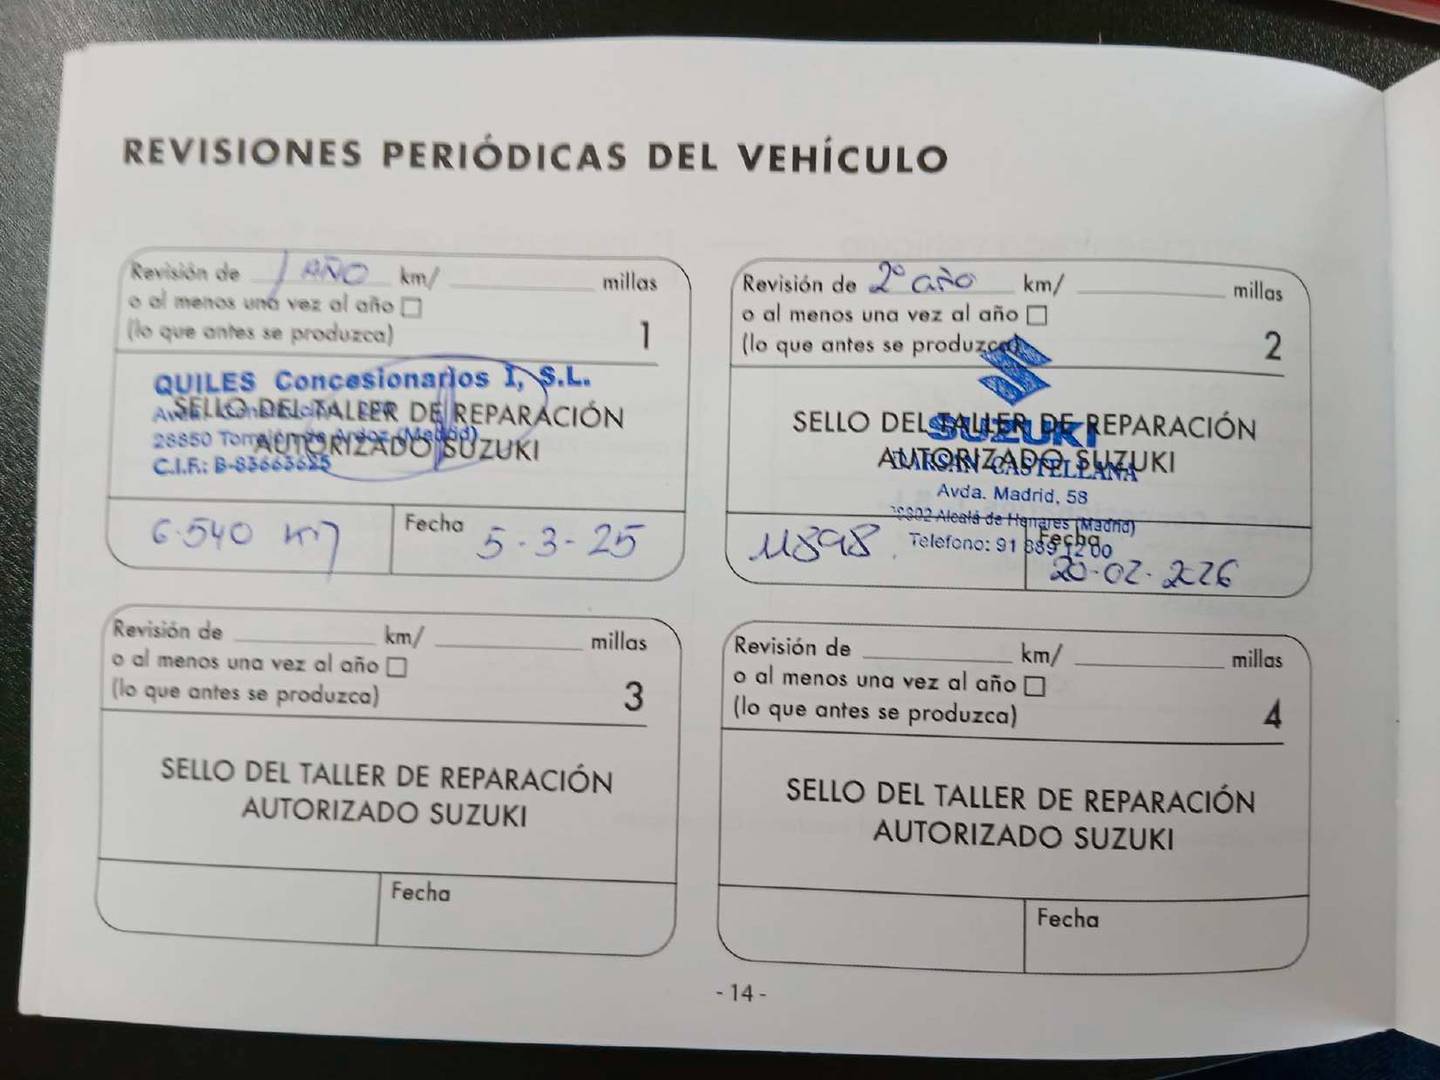 REVISIONES PERIÓDICAS DEL VEHÍCULO
Revisión de 1 AÑO km/ millas
o al menos una vez al año
(lo que antes se produzca)
1
QUILES Concesionarios I, S.L.
SELLO DEL TALLER DE REPARACIÓN
AUTORIZADO SUZUKI
28850 Torrejón de Ardoz (Madrid)
C.I.F.: B-83663625
6.540 km
Fecha
5-3-25
Revisión de 2º año km/ millas
o al menos una vez al año
(lo que antes se produzca)
2
SELLO DEL TALLER DE REPARACIÓN
SUZUKI
AUTORIZADO SUZUKI
CASTELLANA
Avda. Madrid, 58
Alcalá de Henares (Madrid)
Telefono: 91 889 12 00
11898
Fecha
20-02-2026
Revisión de km/ millas
o al menos una vez al año
(lo que antes se produzca)
3
SELLO DEL TALLER DE REPARACIÓN
AUTORIZADO SUZUKI
Fecha
Revisión de km/ millas
o al menos una vez al año
(lo que antes se produzca)
4
SELLO DEL TALLER DE REPARACIÓN
AUTORIZADO SUZUKI
Fecha
- 14 -